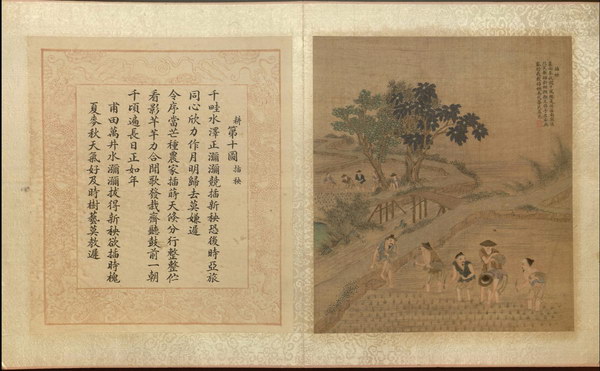 耕 第十圖 插秧
千畦水澤正瀰瀰競插新秧恐後時亞旅
同心欣力作月明歸去莫嫌遲
令序當芒種農家插蒔天倐分行整整佇
看影芊芊力合聞歌發栽齊聽鼓前一朝
千頃遍長日正如年
甫田萬井水瀰瀰拔得新秧欲插時槐
夏麥秋天氣好及時樹藝莫教遲